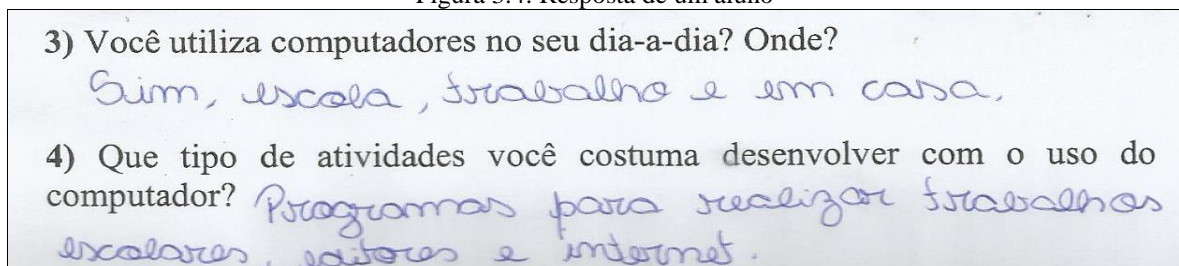 3) Você utiliza computadores no seu dia-a-dia? Onde?
Sim, escola, trabalho e em casa.
4) Que tipo de atividades você costuma desenvolver com o uso do
computador? Programas para realizar trabalhos
escolares, editores e internet.